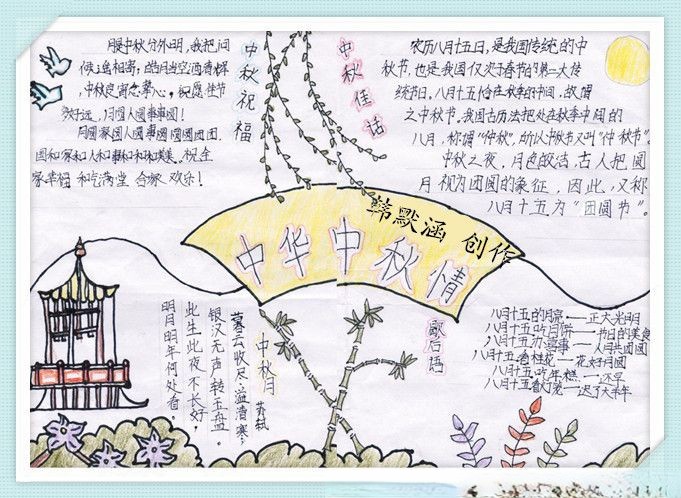 中秋祝福
月是中秋分外明，我把问
候遥相寄；皓月当空洒清辉，
中秋良宵念挚心。祝愿佳节
多好运，月圆人圆事事圆！
月圆家圆人圆事事圆圆团团，
国和家和人和事和和和美美。祝全
家幸福 和气满堂 合家欢乐！
中秋佳话
农历八月十五日，是我国传统的中
秋节，也是我国仅次于春节的第二大传
统节日。八月十五恰在秋季的中间，故谓
之中秋节。我国古历法把处在秋季中间的
八月，称谓“仲秋”，所以中秋节又叫“仲秋节”。
中秋之夜，月色皎洁，古人把圆
月视为团圆的象征，因此，又称
八月十五为“团圆节”。
韩默涵 创作
中华中秋情
中秋月
苏轼
暮云收尽溢清寒，
银汉无声转玉盘。
此生此夜不长好，
明月明年何处看。
歇后语
八月十五的月亮——正大光明
八月十五吃月饼——节日的美食
八月十五办喜事——人月共团圆
八月十五看桂花——花好月圆
八月十五吃年糕——还早
八月十五看灯笼——迟了大半年